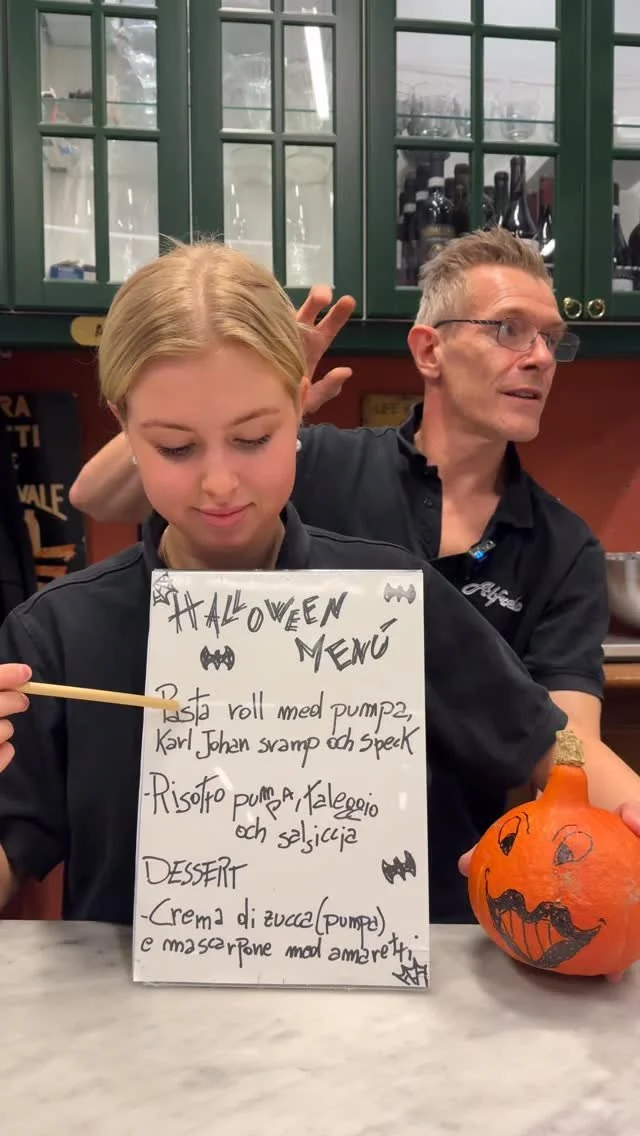 HALLOWEEN
MENÚ
Pasta roll med pumpa,
Karl Johan svamp och speck
-Risotto pumpa, taleggio
och salsiccia
DESSERT
-Crema di zucca (pumpa)
e mascarpone med amaretti
Alfredo